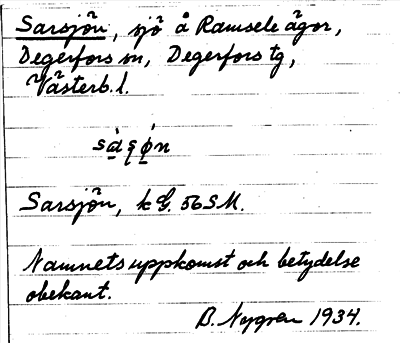 Sarsjön, sjö å Ramsele ägor,
Degerfors sn, Degerfors tg,
Västerb. l.
sȧ̱ʂǿ̱n
Sarsjön, k G. 56 S M.
Namnets uppkomst och betydelse
obekant.
B. Nygren 1934.